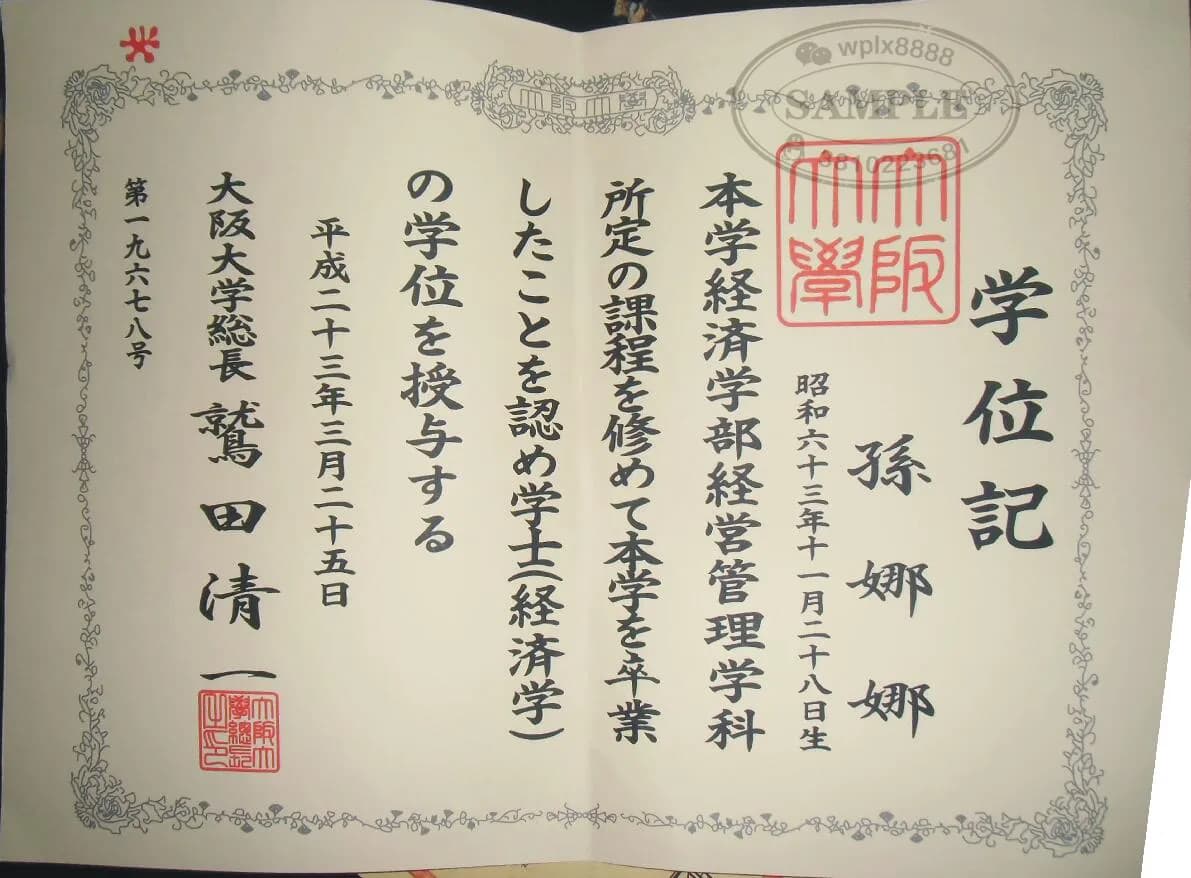 学位記
孫娜娜
昭和六十三年十一月二十八日生
本学経済学部経営管理学科
所定の課程を修めて本学を卒業
したことを認め学士(経済学)
の学位を授与する
平成二十三年三月二十五日
大阪大学総長 鷲田清一
第一九六七八号
大阪大學
大阪大學
大阪大學總長之印
wplx8888
SAMPLE